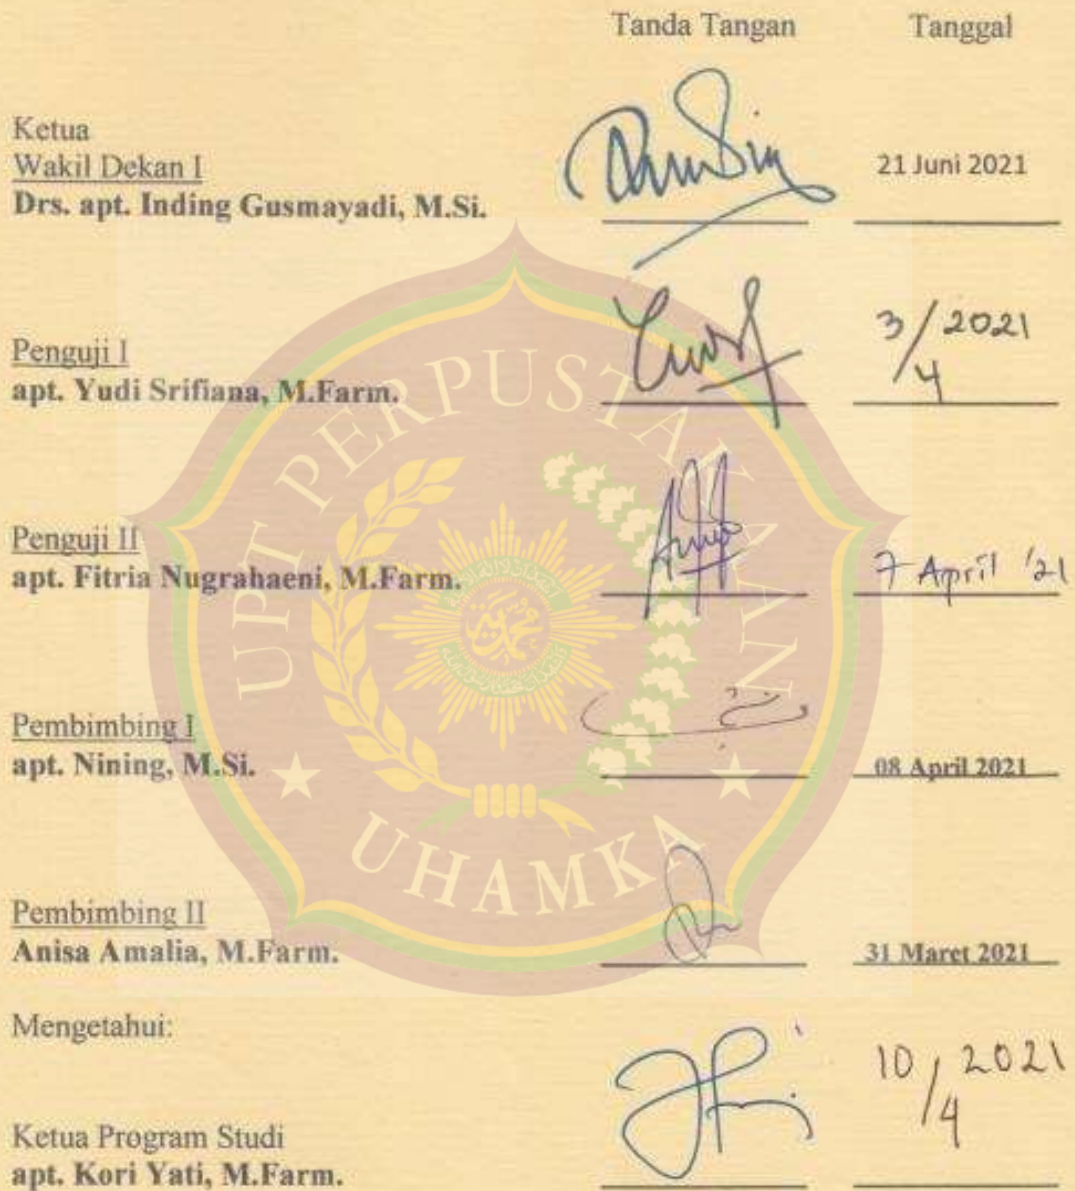 Tanda Tangan Tanggal
Ketua
Wakil Dekan I
Drs. apt. Inding Gusmayadi, M.Si.
21 Juni 2021
Penguji I
apt. Yudi Srifiana, M.Farm.
3/4 2021
Penguji II
apt. Fitria Nugrahaeni, M.Farm.
7 April '21
Pembimbing I
apt. Nining, M.Si.
08 April 2021
Pembimbing II
Anisa Amalia, M.Farm.
31 Maret 2021
Mengetahui:
10/4 2021
Ketua Program Studi
apt. Kori Yati, M.Farm.
UPT PERPUSTAKAAN
UHAMKA